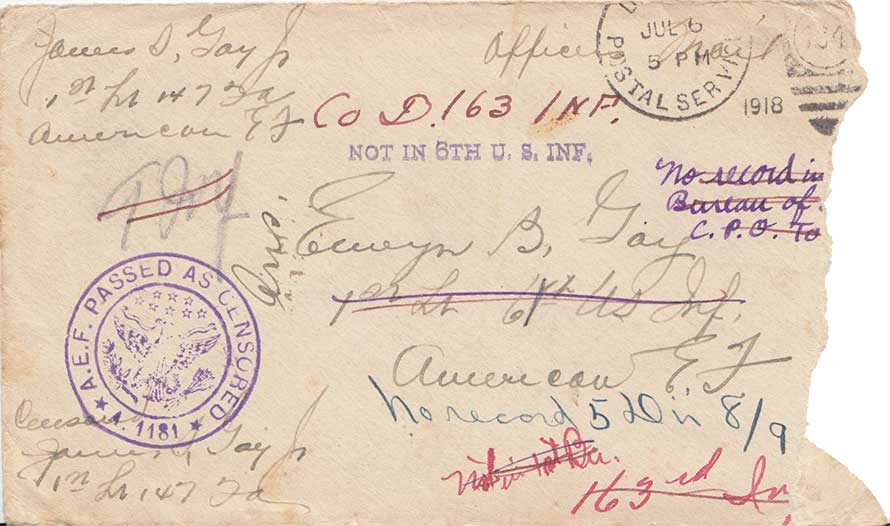 James S, Gay Jr
1st Lt 147 Fa
American E F
Officers Mail
JUL 6
5 PM
POSTAL SERVI
1918
Co D. 163 INF.
NOT IN 6TH U. S. INF.
No record in
Bureau of
C. P. O. To
B, Gay
1st Lt 6th US Inf,
American E, F
A.E.F. PASSED AS CENSORED
A. 1181
No record 5 Div 8/9
Not in 1st Div.
163rd In
Censored
James S, Gay Jr
1st Lt 147 Fa